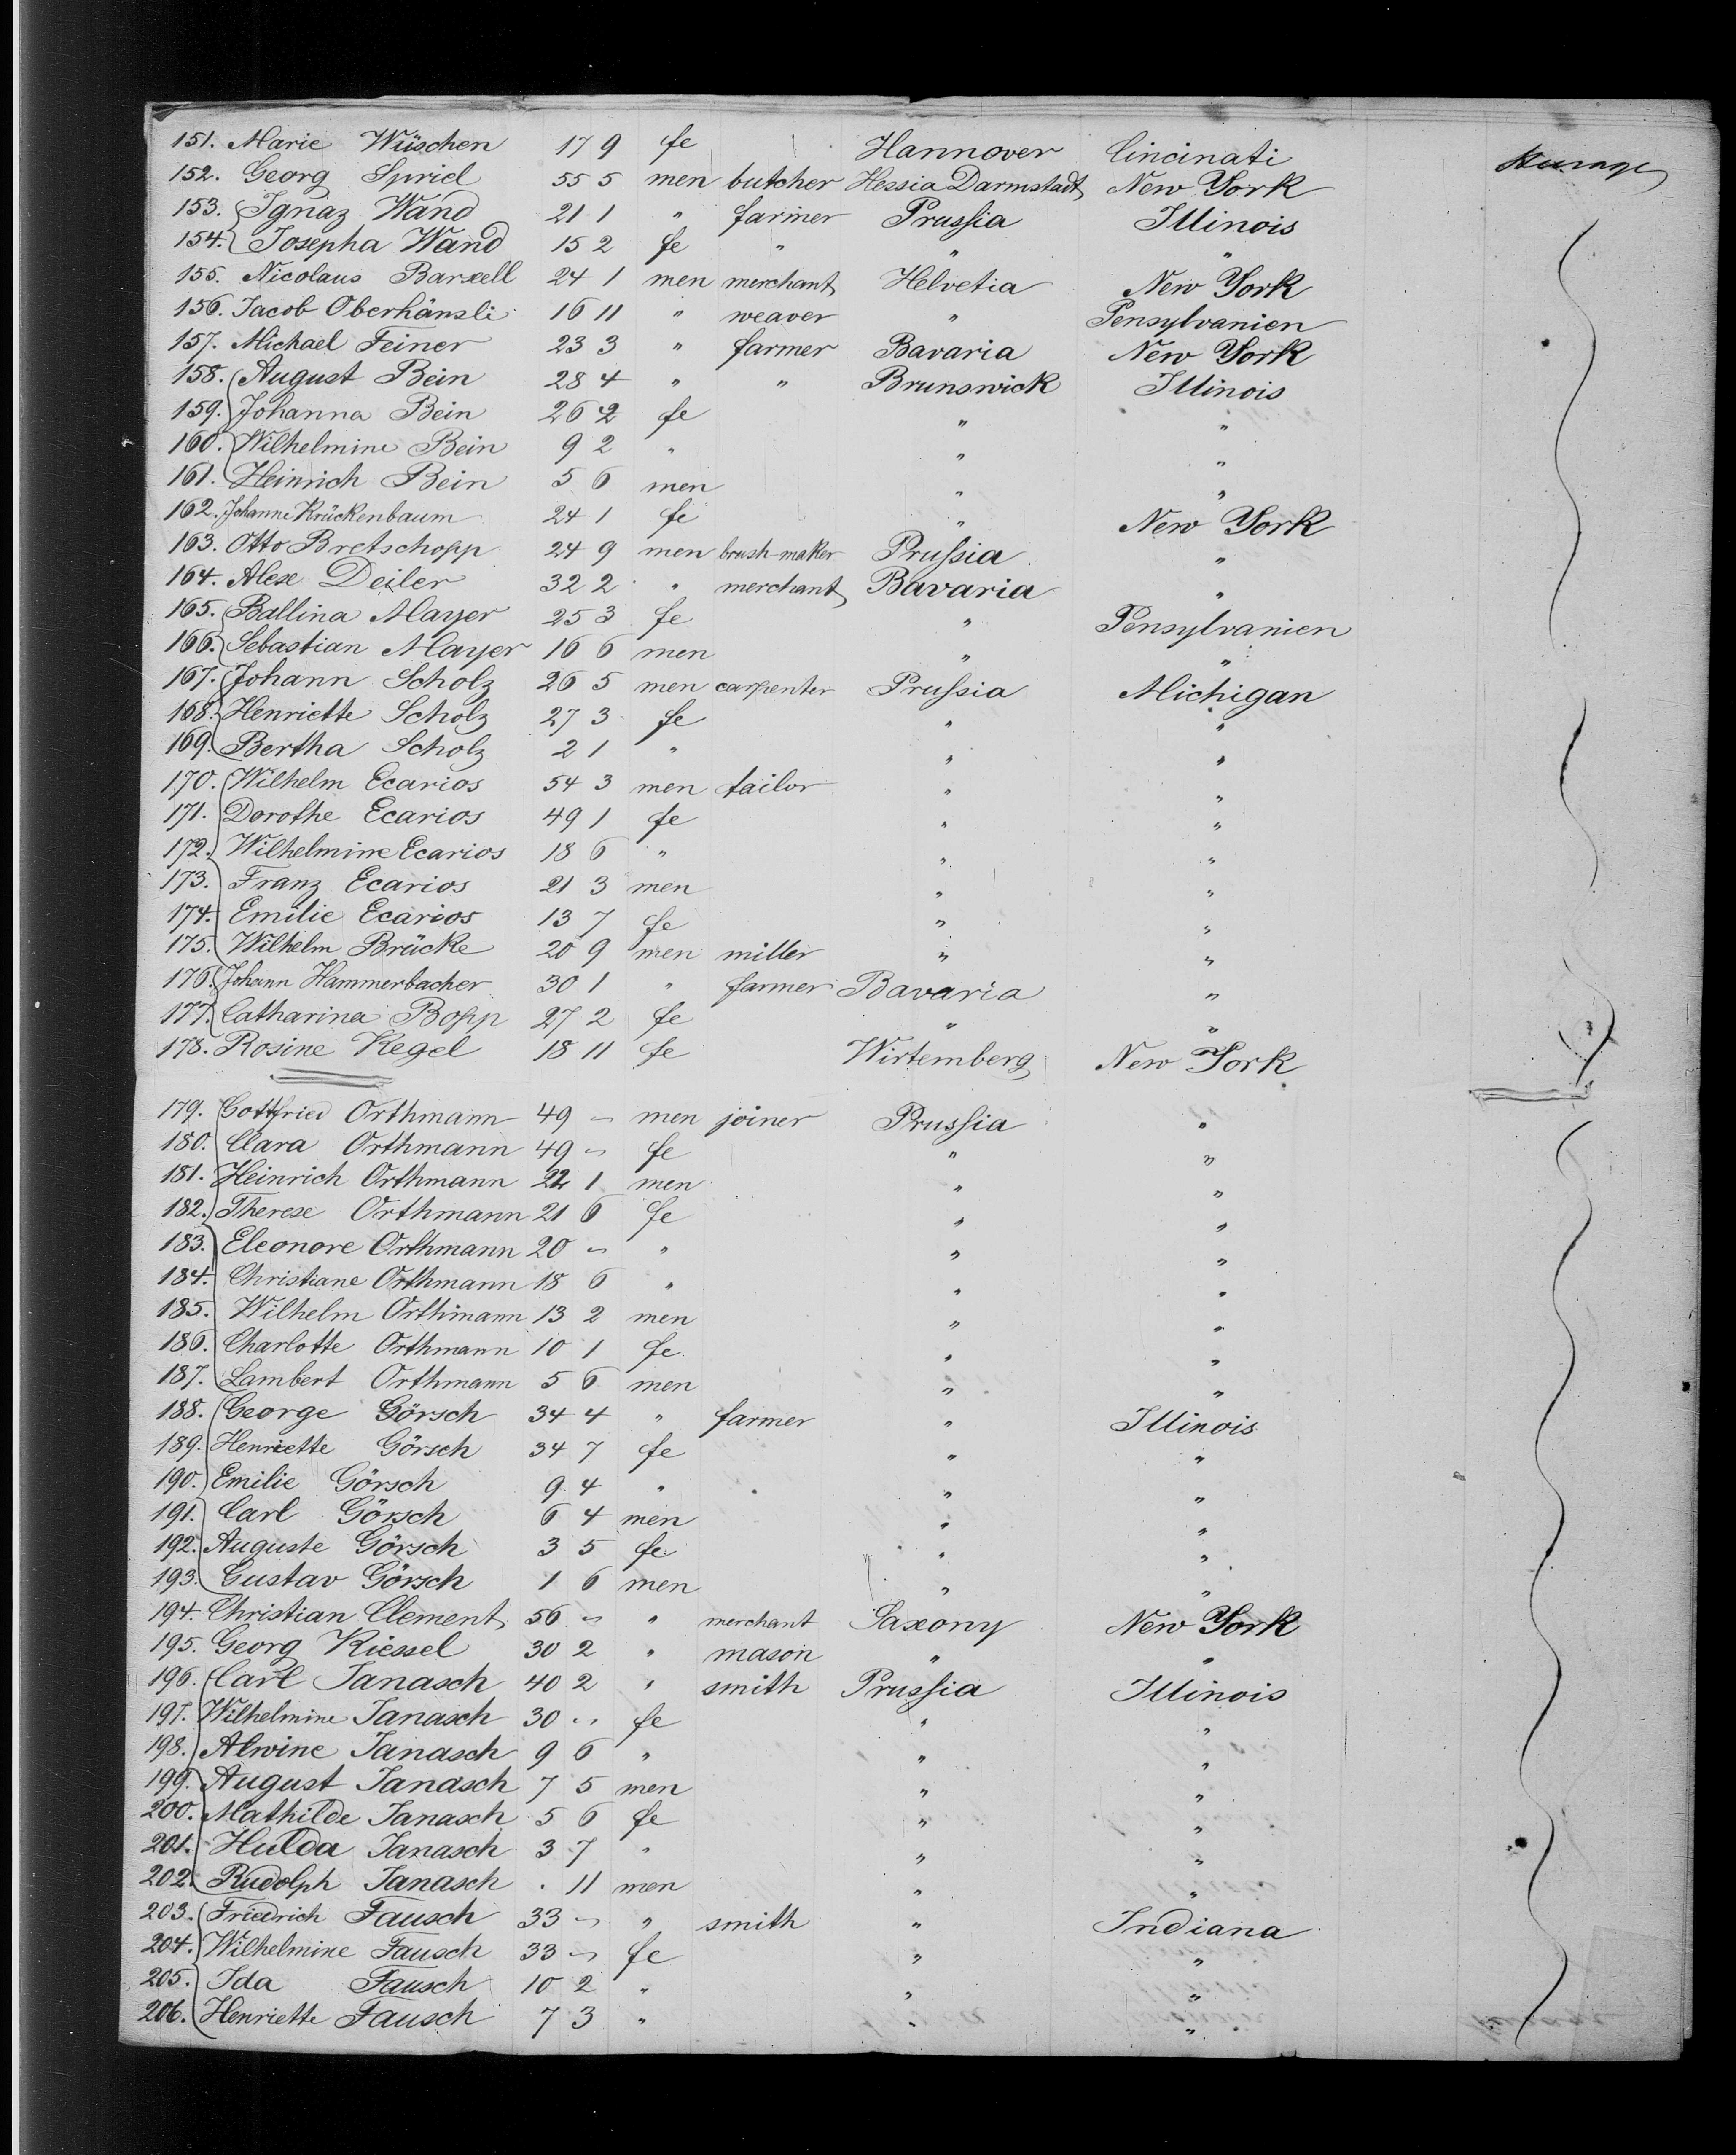 151. Marie Wüschen 17 9 fe Hannover Cincinati Steerage
152. Georg Spriel 55 5 men butcher Hessia Darmstadt New York
153. Ignaz Wand 21 1 " farmer Prussia Illinois
154. Josepha Wand 15 2 fe " " "
155. Nicolaus Barxell 24 1 men merchant Helvetia New York
156. Jacob Oberhänsli 16 11 " weaver " Pensylvanien
157. Michael Feiner 23 3 " farmer Bavaria New York
158. August Bein 28 4 " " Brunswick Illinois
159. Johanna Bein 26 2 fe " "
160. Wilhelmine Bein 9 2 " " "
161. Heinrich Bein 5 6 men " "
162. Johanne Krückenbaum 24 1 fe " New York
163. Otto Bretschopp 24 9 men brush-maker Prussia "
164. Alex Deiler 32 2 " merchant Bavaria "
165. Ballina Mayer 25 3 fe " Pensylvanien
166. Sebastian Mayer 16 6 men " "
167. Johann Scholz 26 5 men carpenter Prussia Michigan
168. Henriette Scholz 27 3 fe " "
169. Bertha Scholz 2 1 " " "
170. Wilhelm Ecarios 54 3 men tailor " "
171. Dorothe Ecarios 49 1 fe " "
172. Wilhelmine Ecarios 18 6 " " "
173. Franz Ecarios 21 3 men " "
174. Emilie Ecarios 13 7 fe " "
175. Wilhelm Brücke 20 9 men miller " "
176. Johann Hammerbacher 30 1 " farmer Bavaria "
177. Catharina Bopp 27 2 fe " "
178. Rosine Kegel 18 11 fe Wirtemberg New York
179. Gottfried Orthmann 49 - men joiner Prussia "
180. Clara Orthmann 49 - fe " "
181. Heinrich Orthmann 22 1 men " "
182. Therese Orthmann 21 6 fe " "
183. Eleonore Orthmann 20 - " " "
184. Christiane Orthmann 18 6 " " "
185. Wilhelm Orthmann 13 2 men " "
186. Charlotte Orthmann 10 1 fe " "
187. Lambert Orthmann 5 6 men " "
188. George Görsch 34 4 " farmer " Illinois
189. Henriette Görsch 34 7 fe " "
190. Emilie Görsch 9 4 " " "
191. Carl Görsch 6 4 men " "
192. Auguste Görsch 3 5 fe " "
193. Gustav Görsch 1 6 men " "
194. Christian Clement 56 - " merchant Saxony New York
195. Georg Kiessel 30 2 " mason " "
196. Carl Janasch 40 2 " smith Prussia Illinois
197. Wilhelmine Janasch 30 - fe " "
198. Alwine Janasch 9 6 " " "
199. August Janasch 7 5 men " "
200. Mathilde Janasch 5 6 fe " "
201. Hulda Janasch 3 7 " " "
202. Rudolph Janasch . 11 men " "
203. Friedrich Fausch 33 - " smith " Indiana
204. Wilhelmine Fausch 33 - fe " "
205. Ida Fausch 10 2 " " "
206. Henriette Fausch 7 3 " " "